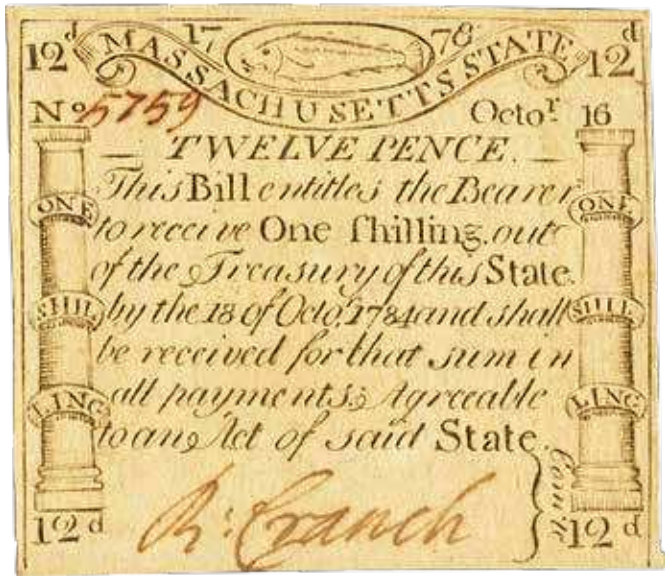 12d 17 78 12d
MASSACHUSETTS STATE
No 5759 Octor 16
— TWELVE PENCE. —
This Bill entitles the Bearer
to receive One ſhilling out
of the Treasury of this State.
by the 18 of Octo.r 1784 and shall
be received for that sum in
all payments, Agreeable
to an Act of said State.
ONE
SHIL
LING
ONE
SHIL
LING
R: Cranch
Comte
12d 12d